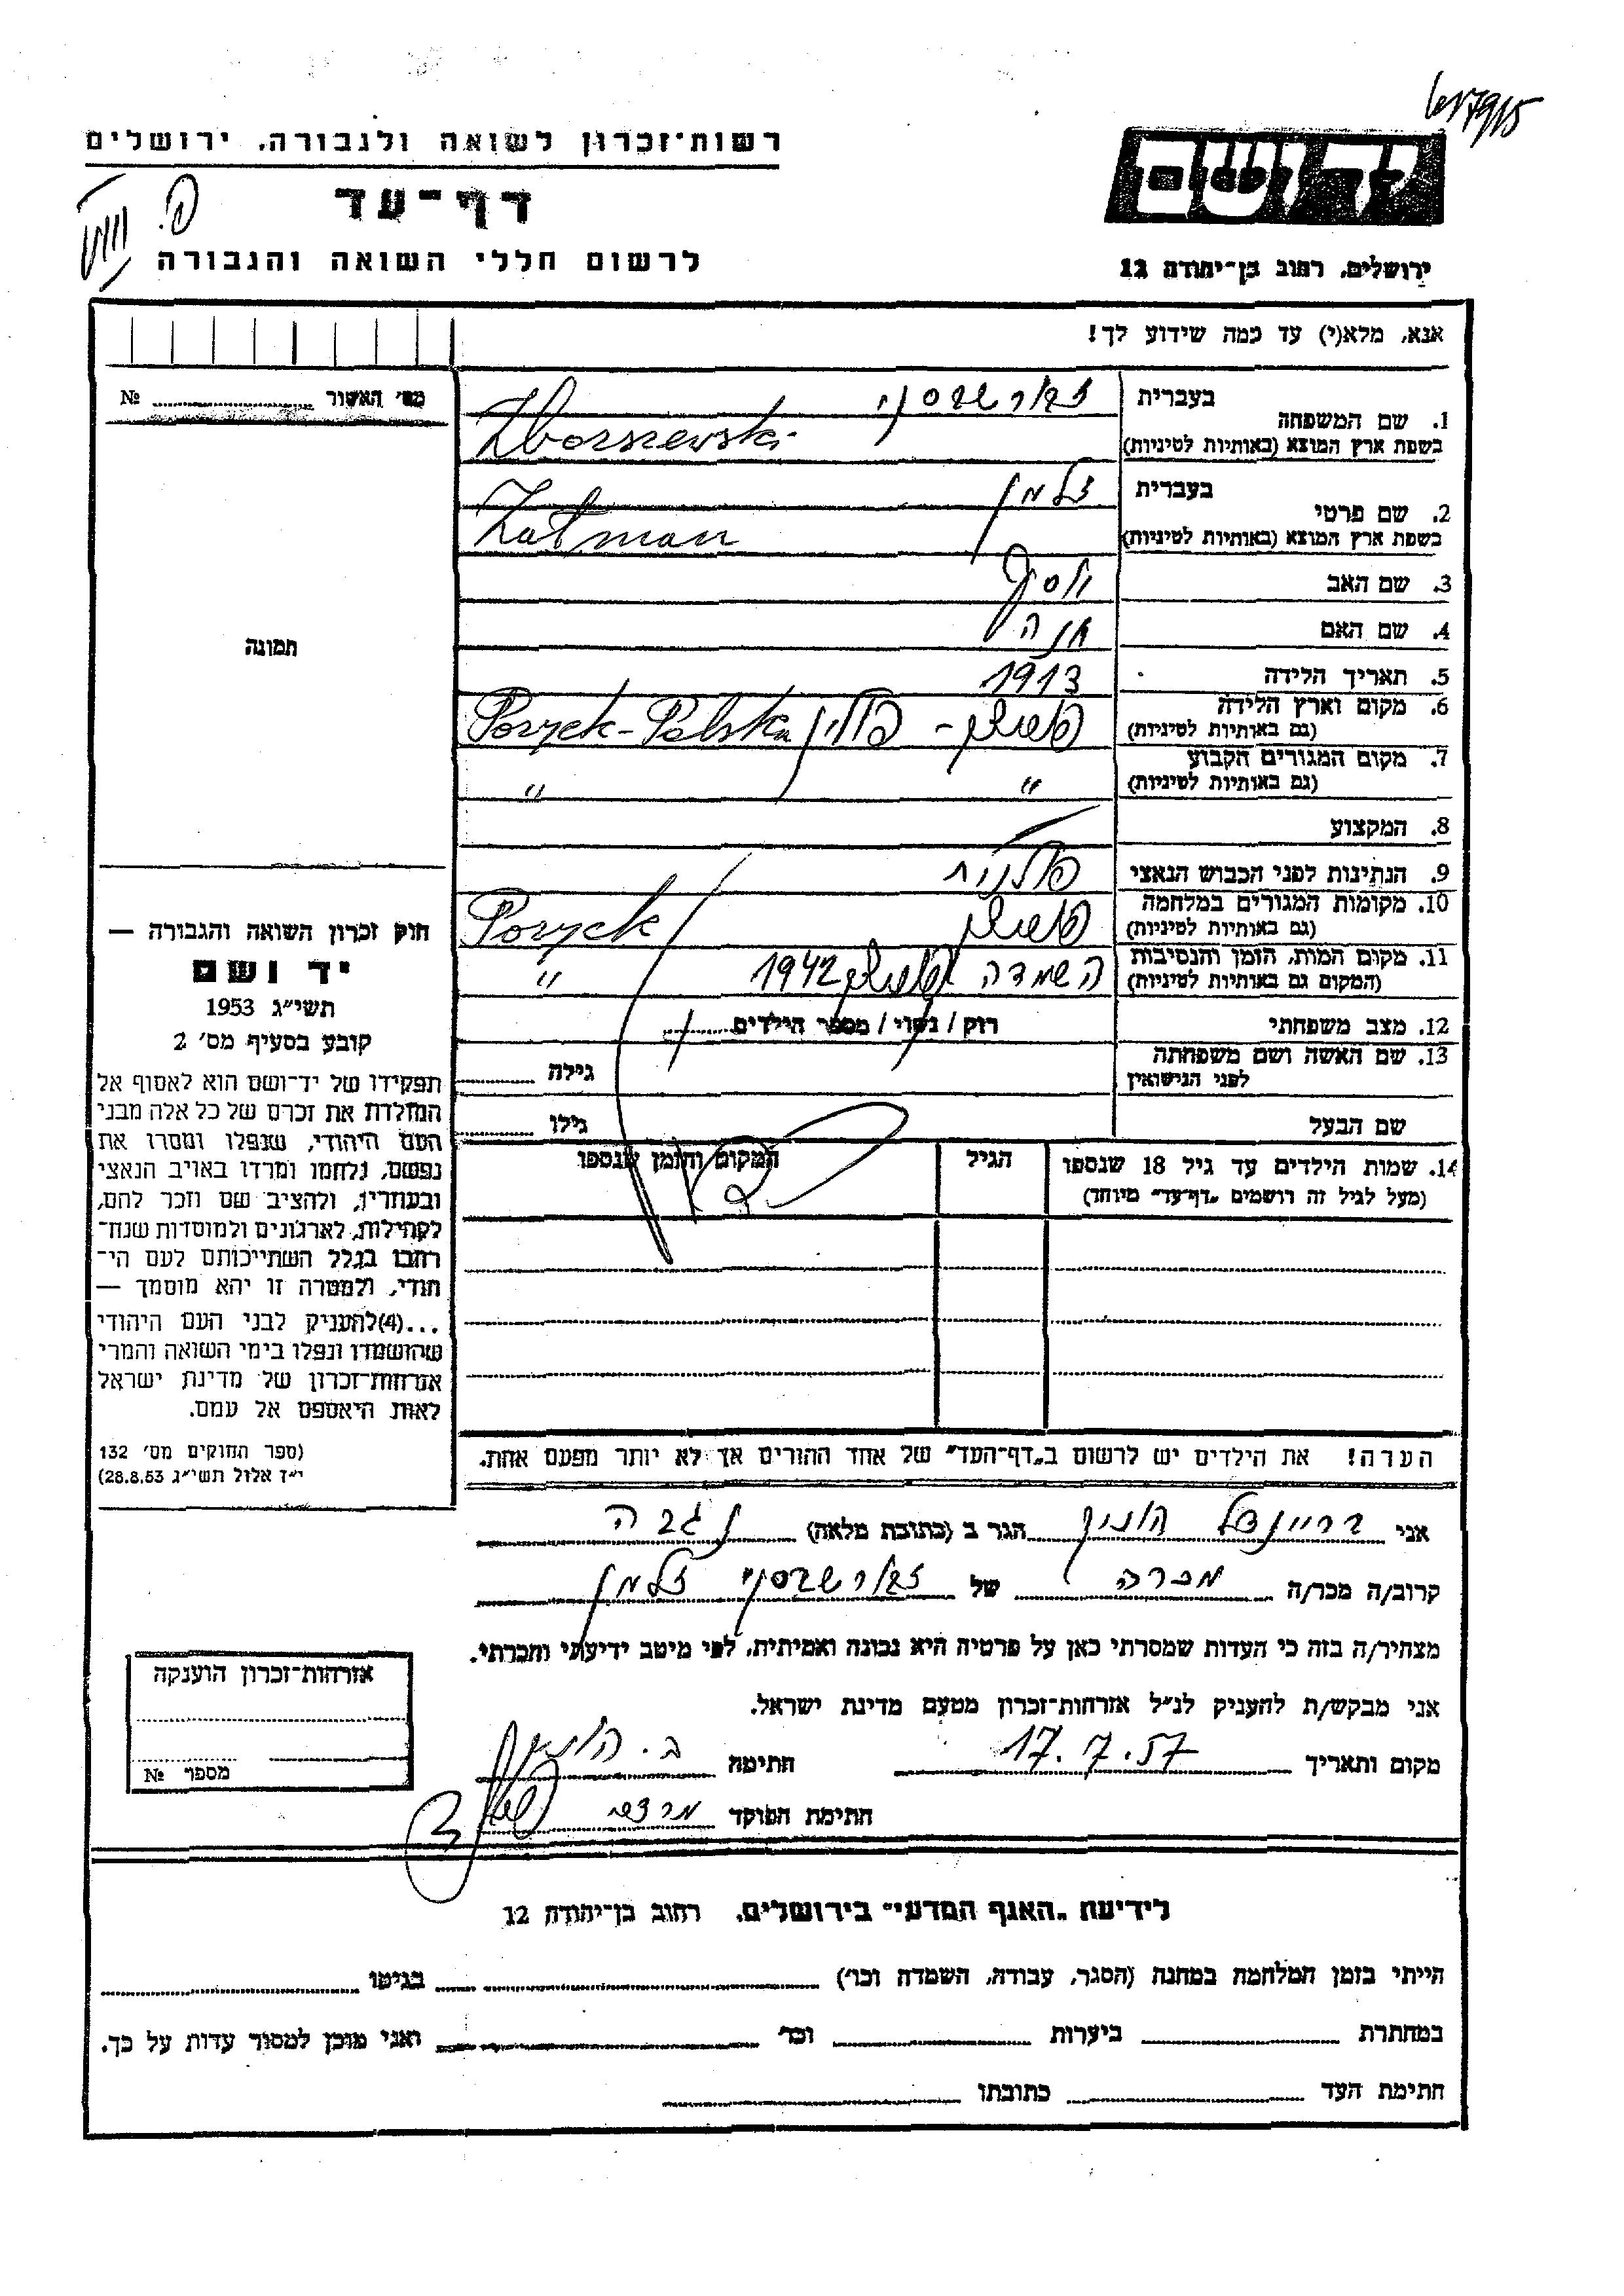 רשות־זכרון לשואה ולגבורה, ירושלים
דף־עד
לרשום חללי השואה והגבורה
יד ושם
ירושלים, רחוב בן־יהודה 12
אנא, מלא(י) עד כמה שידוע לך!
מס׳ האשור № 
1. שם המשפחה
בעברית זבורשבסקי
בשפת ארץ המוצא (באותיות לטיניות) Zborszewski
2. שם פרטי
בעברית זלמן
בשפת ארץ המוצא (באותיות לטיניות) Zalman
3. שם האב יוסף
4. שם האם חנה
5. תאריך הלידה 1913
6. מקום וארץ הלידה פוריצק - פולין Poryck - Polska
(גם באותיות לטיניות)
7. מקום המגורים הקבוע " "
(גם באותיות לטיניות)
8. המקצוע
9. הנתינות לפני הכבוש הנאצי פולנית
10. מקומות המגורים במלחמה פוריצק Poryck
(גם באותיות לטיניות)
11. מקום המות, הזמן והנסיבות השמדה פוריצק 1942 "
(המקום גם באותיות לטיניות)
12. מצב משפחתי רווק / נשוי / מספר הילדים
13. שם האשה ושם משפחתה
לפני הנישואין
גילה
שם הבעל גילו
14. שמות הילדים עד גיל 18 שנספו
(מעל לגיל זה רושמים „דף־עד״ מיוחד)
הגיל
המקום והזמן שנספו
תמונה
חוק זכרון השואה והגבורה —
יד ושם
תשי״ג 1953
קובע בסעיף מס׳ 2
תפקידו של יד־ושם הוא לאסוף אל
המולדת את זכרם של כל אלה מבני
העם היהודי, שנפלו ומסרו את
נפשם, נלחמו ומרדו באויב הנאצי
ובעוזריו, ולהציב שם וזכר להם,
לקהילות, לארגונים ולמוסדות שנח־
רבו בגלל השתייכותם לעם הי־
הודי, ולמטרה זו יהא מוסמך —
...(4)להעניק לבני העם היהודי
שהושמדו ונפלו בימי השואה והמרי
אזרחות־זכרון של מדינת ישראל
לאות היאספם אל עמם.
(ספר החוקים מס׳ 132
י״ז אלול תשי״ג 28.8.53)
הערה! את הילדים יש לרשום ב„דף־העד״ של אחד ההורים אך לא יותר מפעם אחת.
אני בריינדל הוניק הגר ב (כתובת מלאה) נגבה
קרוב/ה מכר/ה מכרה של זבורשבסקי זלמן
מצהיר/ה בזה כי העדות שמסרתי כאן על פרטיה היא נכונה ואמיתית, לפי מיטב ידיעתי והכרתי.
אני מבקש/ת להעניק לנ״ל אזרחות־זכרון מטעם מדינת ישראל.
מקום ותאריך 17.7.57 חתימה ב. הוניק
חתימת הפוקד
אזרחות־זכרון הוענקה
מספר №
לידיעת „האגף המדעי״ בירושלים, רחוב בן־יהודה 12
הייתי בזמן המלחמה במחנה (הסגר, עבודה, השמדה וכו׳) בגיטו
במחתרת ביערות וכו׳ ואני מוכן למסור עדות על כך.
חתימת העד כתובתו